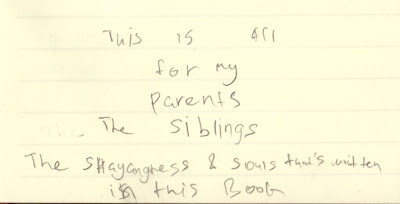 This is all
for my
parents
The siblings
The & souls that's written
in this Book